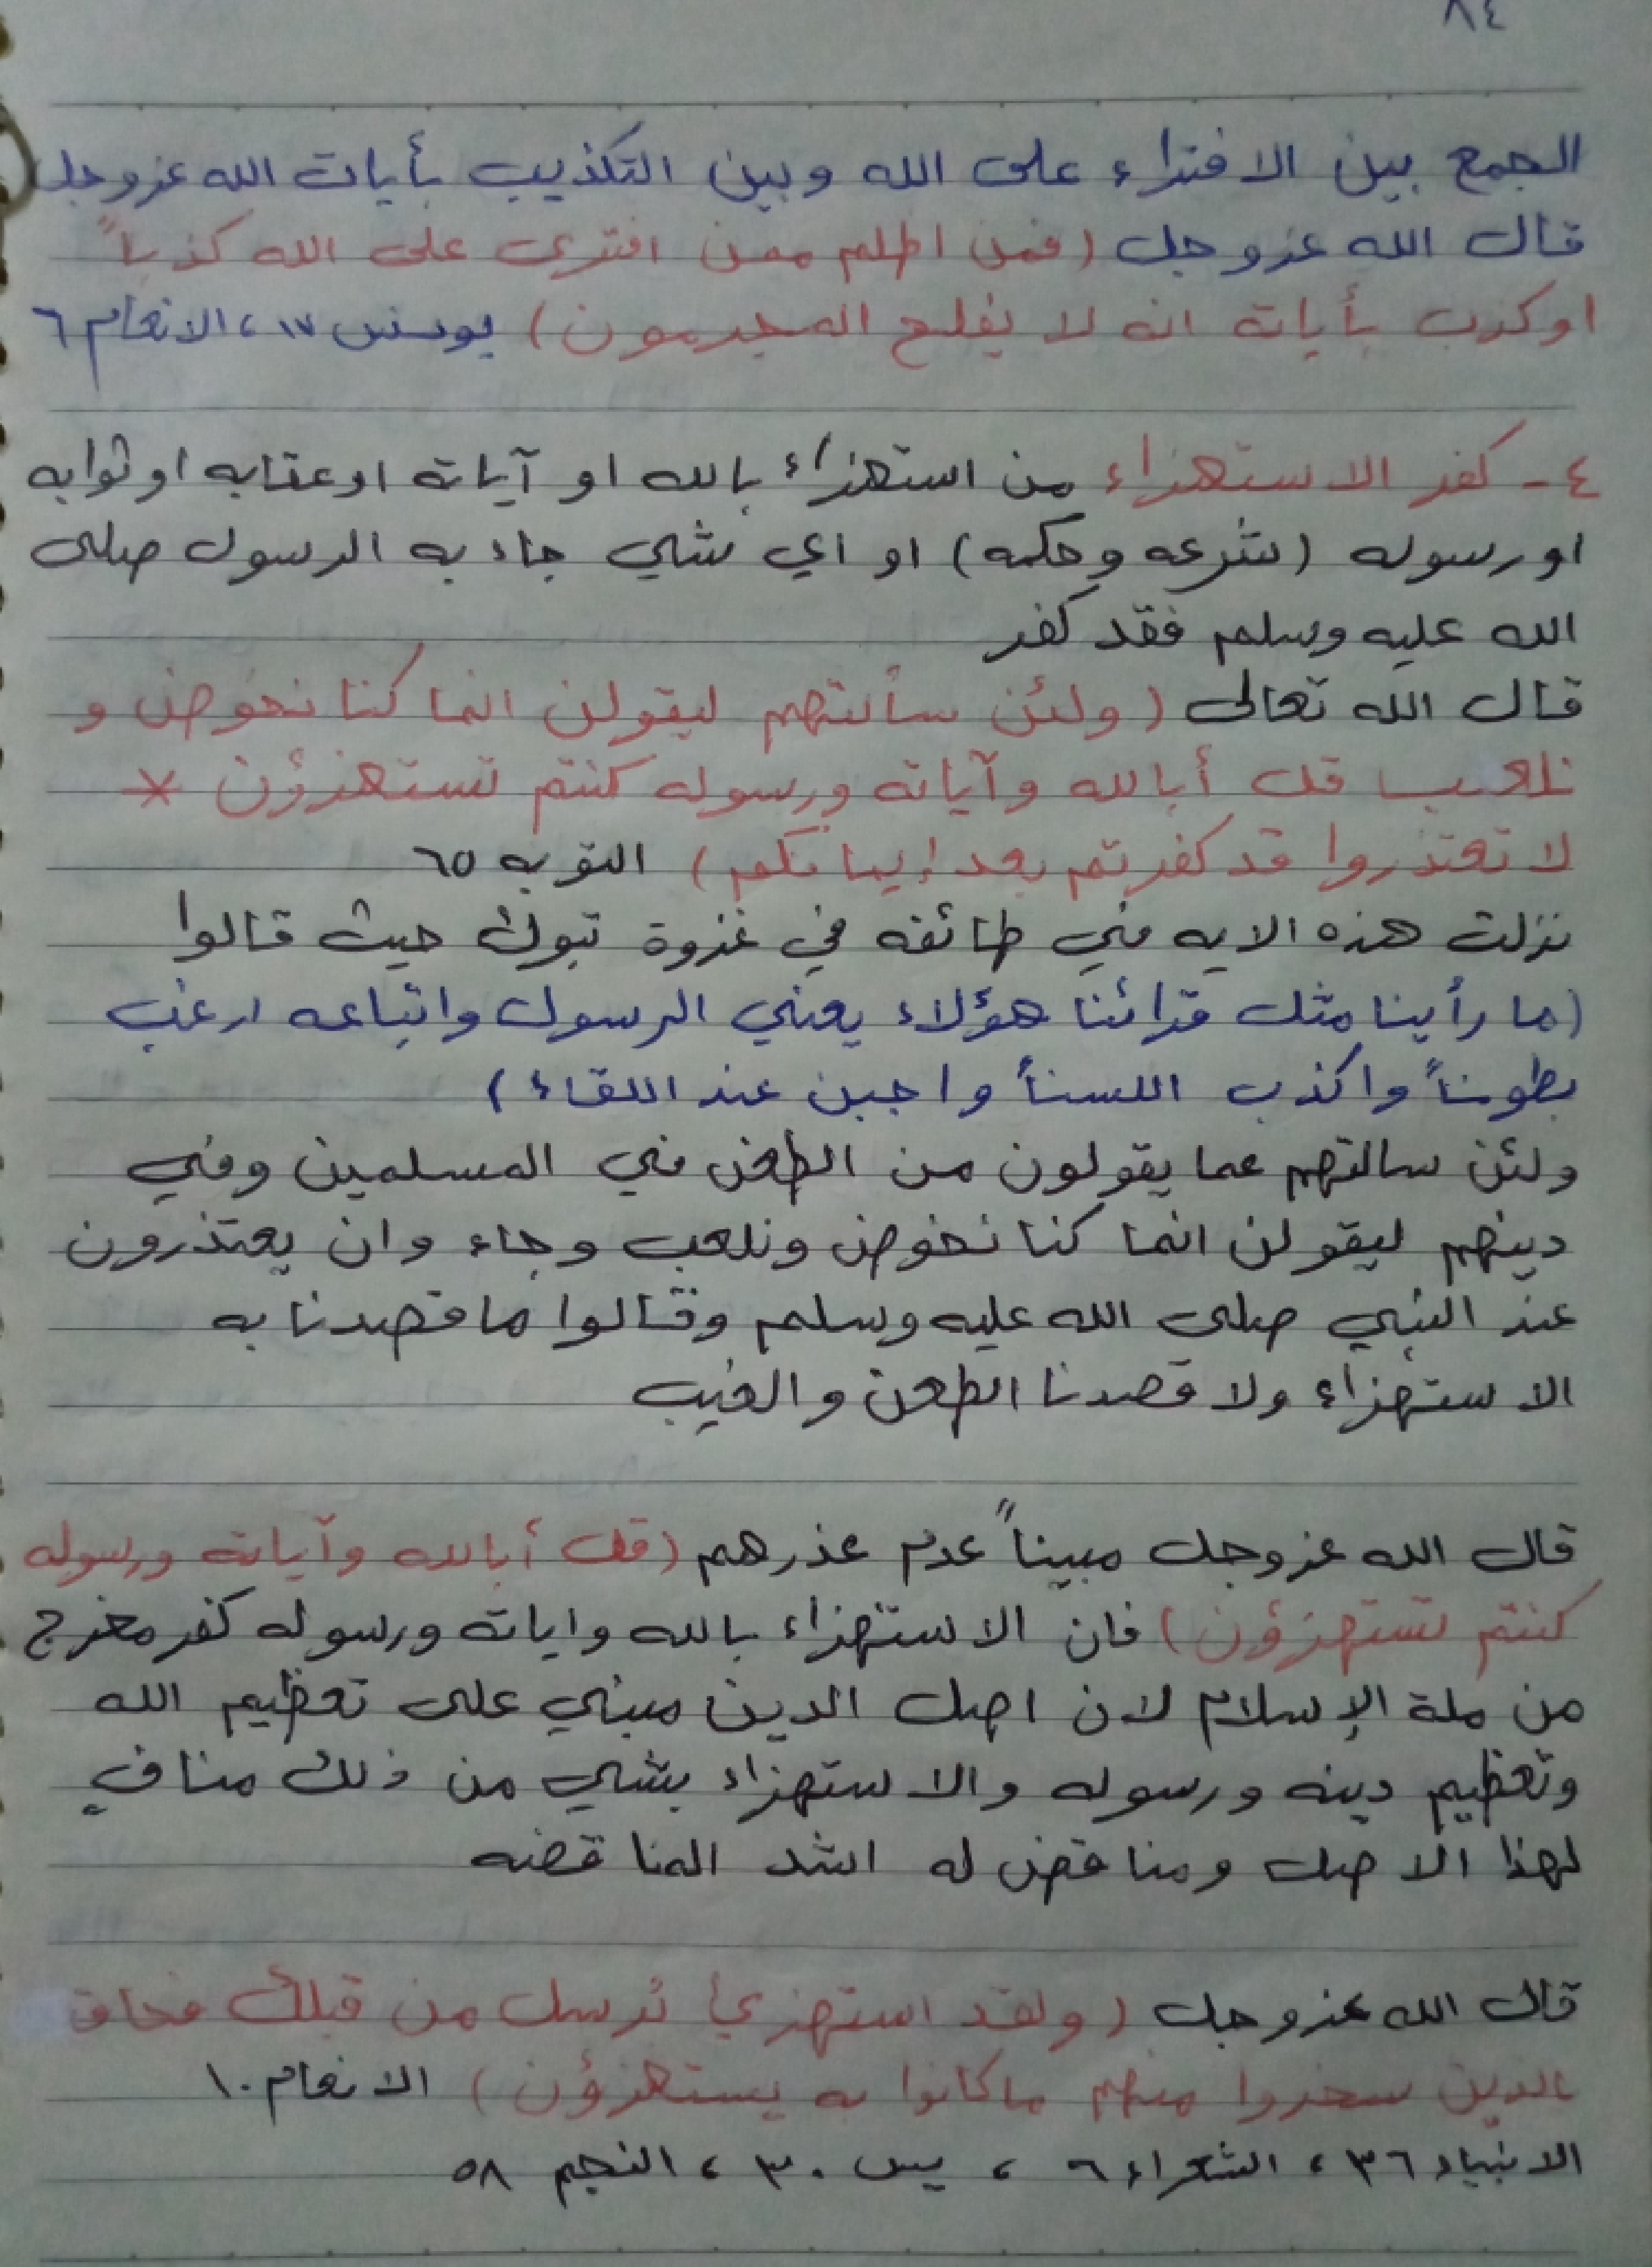 ٨٤
الجمع بين الافتراء على الله وبين التكذيب بأيات الله عزوجل
قال الله عزوجل (فمن اظلم ممن افترى على الله كذباً
او كذب بأياته انه لا يفلح المجرمون) يونس ١٧، الانعام ٦
٤- كفر الاستهزاء من استهزاء بالله او آياته او عقابه او ثوابه
او رسوله (شرعه وحكمه) او اي شي جاء به الرسول صلى
الله عليه وسلم فقد كفر
قال الله تعالى (ولئن سألتهم ليقولن انما كنا نخوض و
نلعب قل أبالله وآياته ورسوله كنتم تستهزؤن *
لا تعتذروا قد كفرتم بعد إيمانكم) التوبه ٦٥
نزلت هذه الايه في طائفه في غزوة تبوك حيث قالوا
(ما رأينا مثل قرائنا هؤلاء يعني الرسول واتباعه ارغب
بطوناً واكذب اللسناً واجبن عند اللقاء)
ولئن سالتهم عما يقولون من الطعن في المسلمين وفي
دينهم ليقولن انما كنا نخوض ونلعب وجاء وان يعتذرون
عند النبي صلى الله عليه وسلم وقالوا ما قصدنا به
الاستهزاء ولا قصدنا الطعن والعيب
قال الله عزوجل مبيناً عدم عذرهم (قل أبالله وآياته ورسوله
كنتم تستهزؤن) فان الاستهزاء بالله واياته ورسوله كفر مخرج
من ملة الإسلام لان اصل الدين مبني على تعظيم الله
وتعظيم دينه ورسوله والاستهزاء بشي من ذلك منافي
لهذا الاصل ومناقض له اشد المناقضه
قال الله عزوجل (ولقد استهزئ برسل من قبلك فحاق
بالذين سخروا منهم ما كانوا به يستهزؤن) الانعام ١٠
الانبياء ٣٦، الشعراء ٦، يس ٣٠، النجم ٥٨